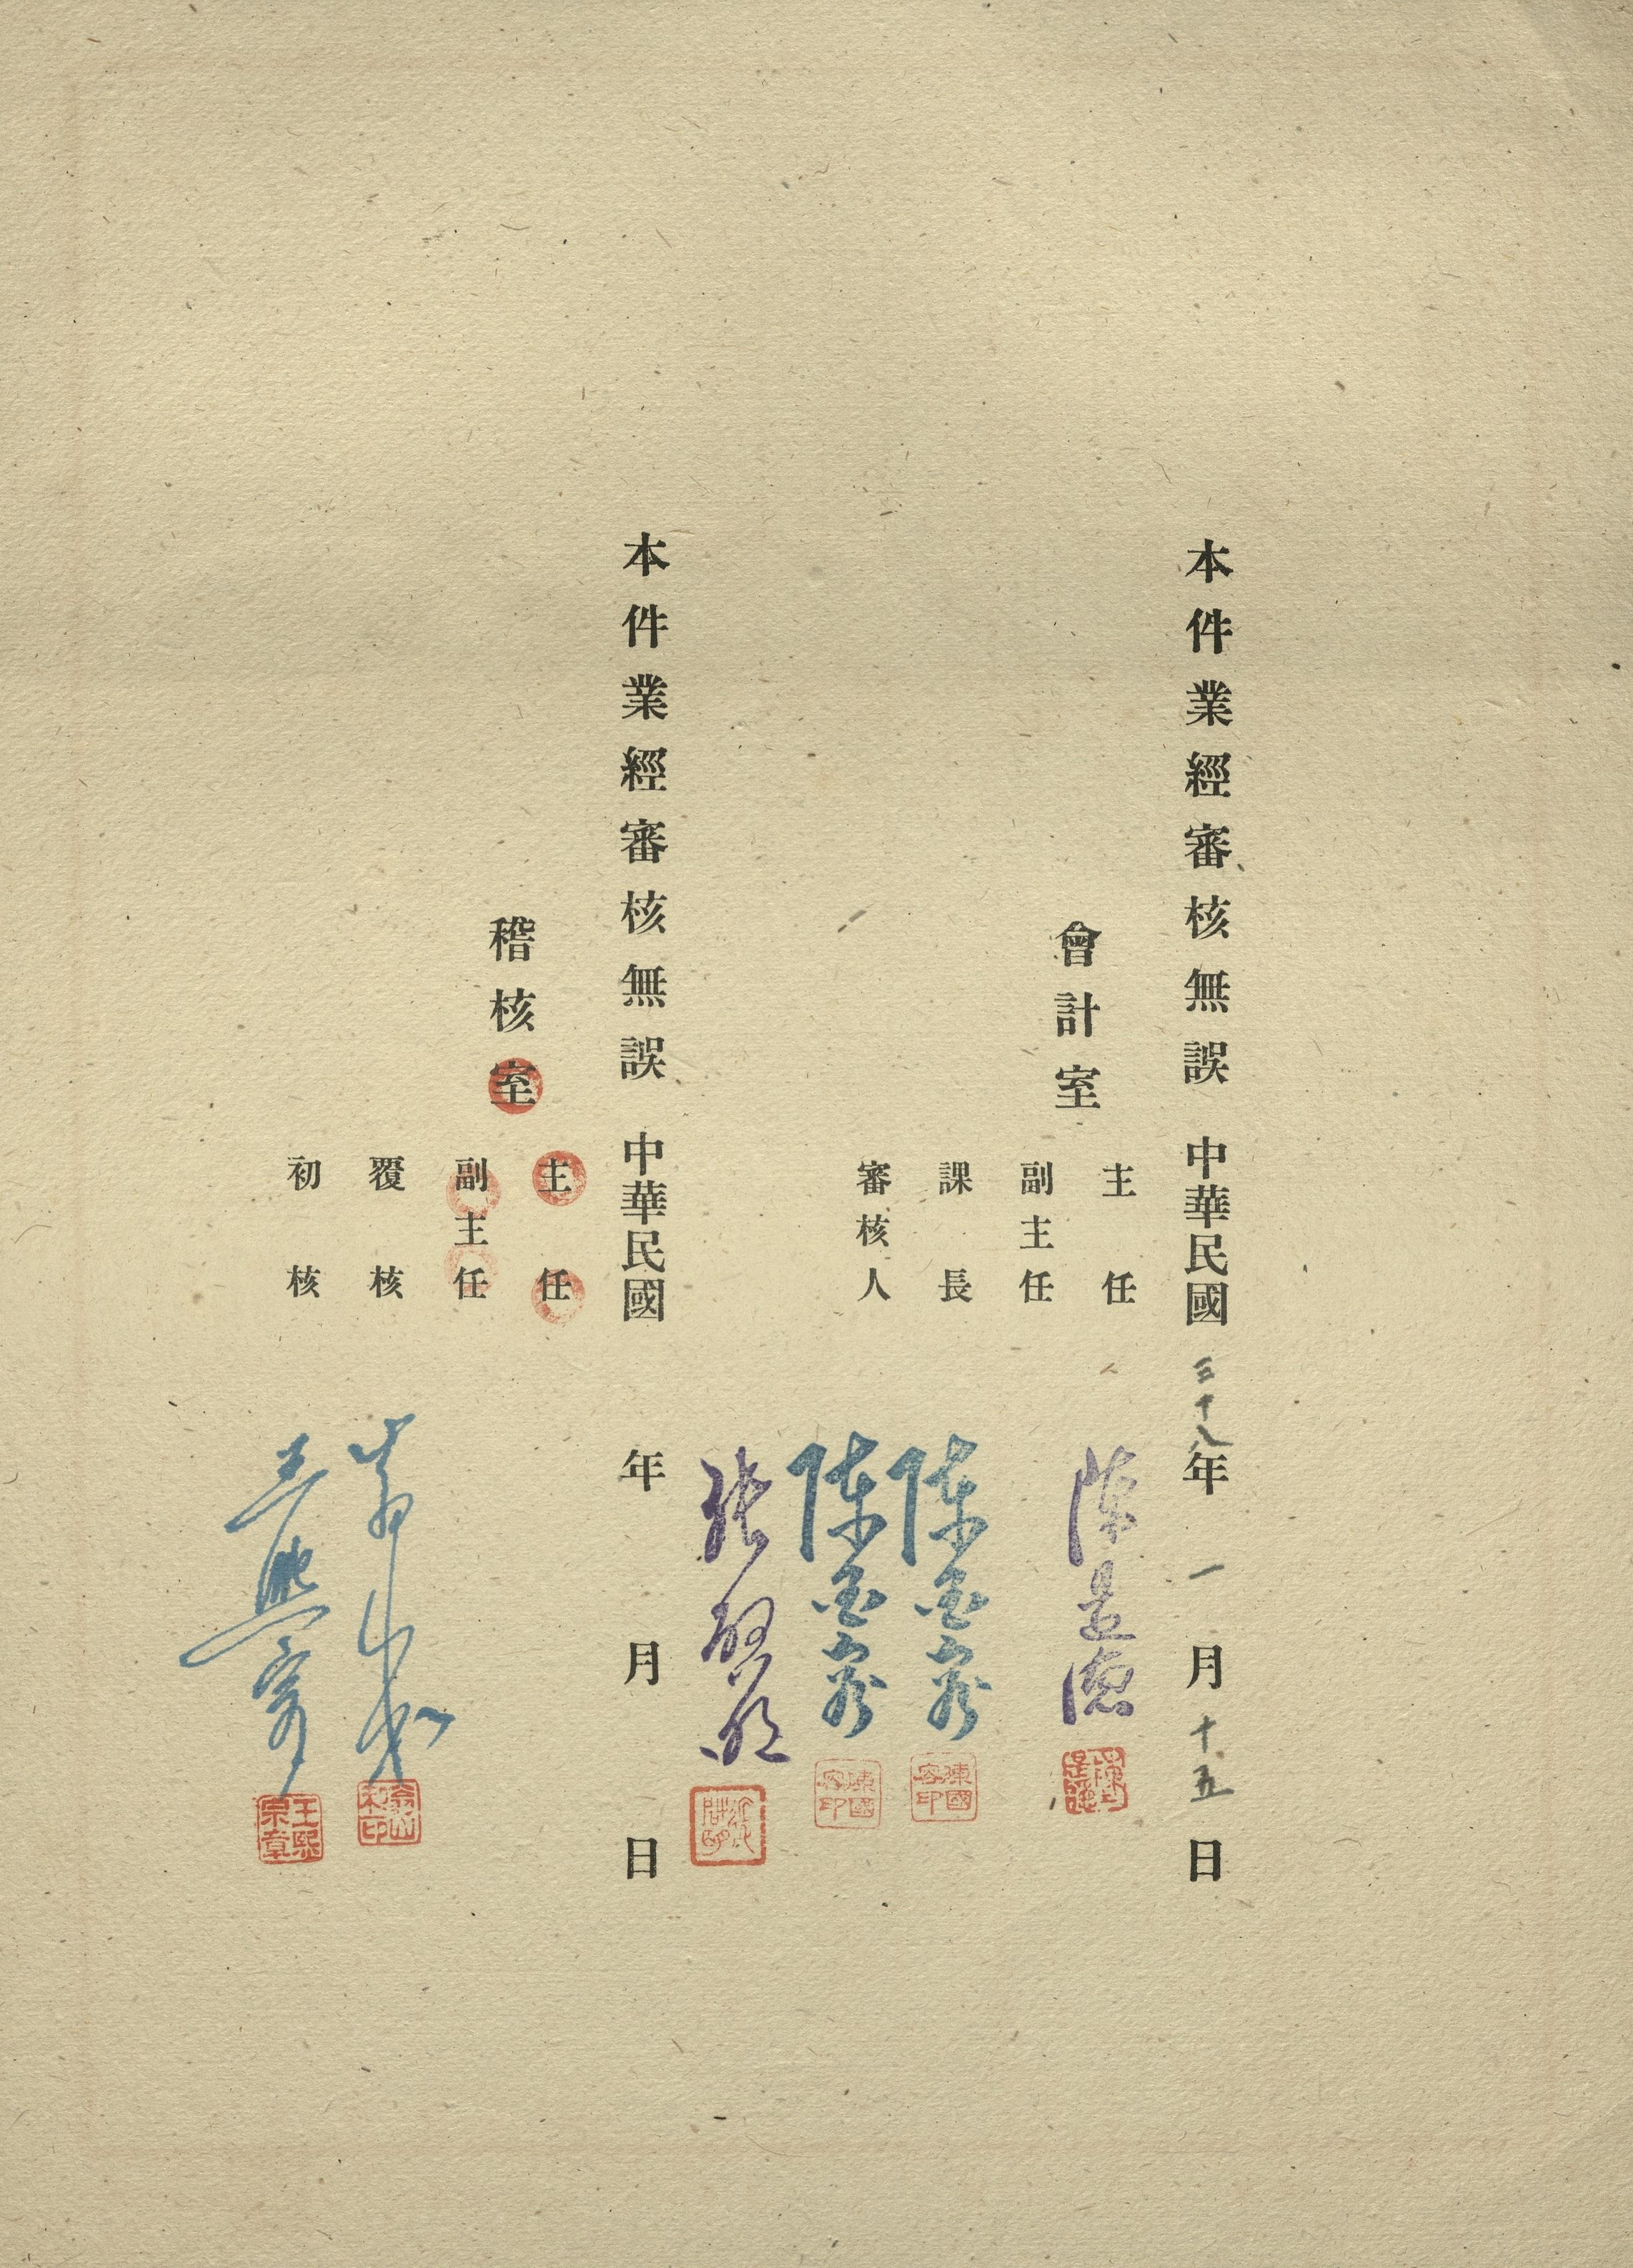 本件業經審核無誤 中華民國三十八年一月十五日
會計室
主任 陳是德
副主任
課長 陳國容
審核人 陳國容
張
本件業經審核無誤 中華民國 年 月 日
稽核室
主任
副主任
覆核
初核 王熙宗
陳國容印
陳國容印
王熙宗章